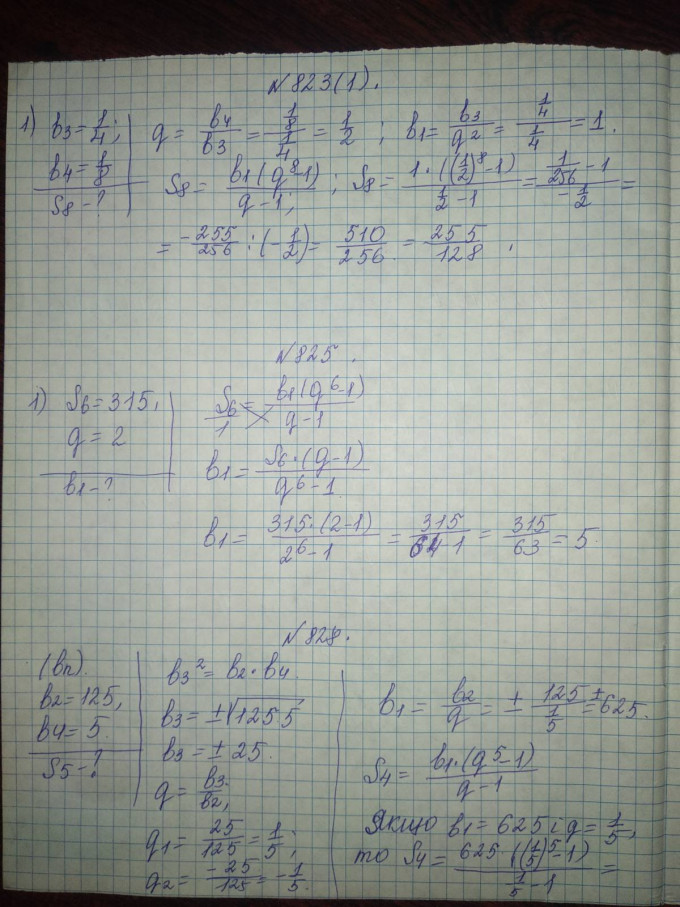 №823(1).
1) b₃ = 1/4; q = b₄/b₃ = (1/8)/(1/4) = 1/2 ; b₁ = b₃/q² = (1/4)/(1/4) = 1.
b₄ = 1/8
S₈ - ? S₈ = b₁(q⁸-1)/(q-1); ; S₈ = 1·((1/2)⁸-1)/(1/2 - 1) = (1/256 - 1)/(-1/2) =
= -255/256 : (-1/2) = 510/256 = 255/128 ;
№825.
1) S₆ = 315, S₆/1 = b₁(q⁶-1)/(q-1)
q = 2
b₁ - ? b₁ = S₆·(q-1)/(q⁶-1)
b₁ = 315·(2-1)/(2⁶-1) = 315/(64-1) = 315/63 = 5.
№828.
(bn).
b₂ = 125,
b₄ = 5.
S₅ - ?
b₃² = b₂·b₄
b₃ = ±√(125 5)
b₃ = ± 25.
q = b₃/b₂,
q₁ = 25/125 = 1/5;
q₂ = -25/125 = -1/5.
b₁ = b₂/q = ± 125/(1/5) = ±625.
S₄ = b₁·(q⁵-1)/(q-1)
Якщо b₁ = 625 і q = 1/5,
то S₄ = 625·((1/5)⁵-1)/(1/5 - 1) =